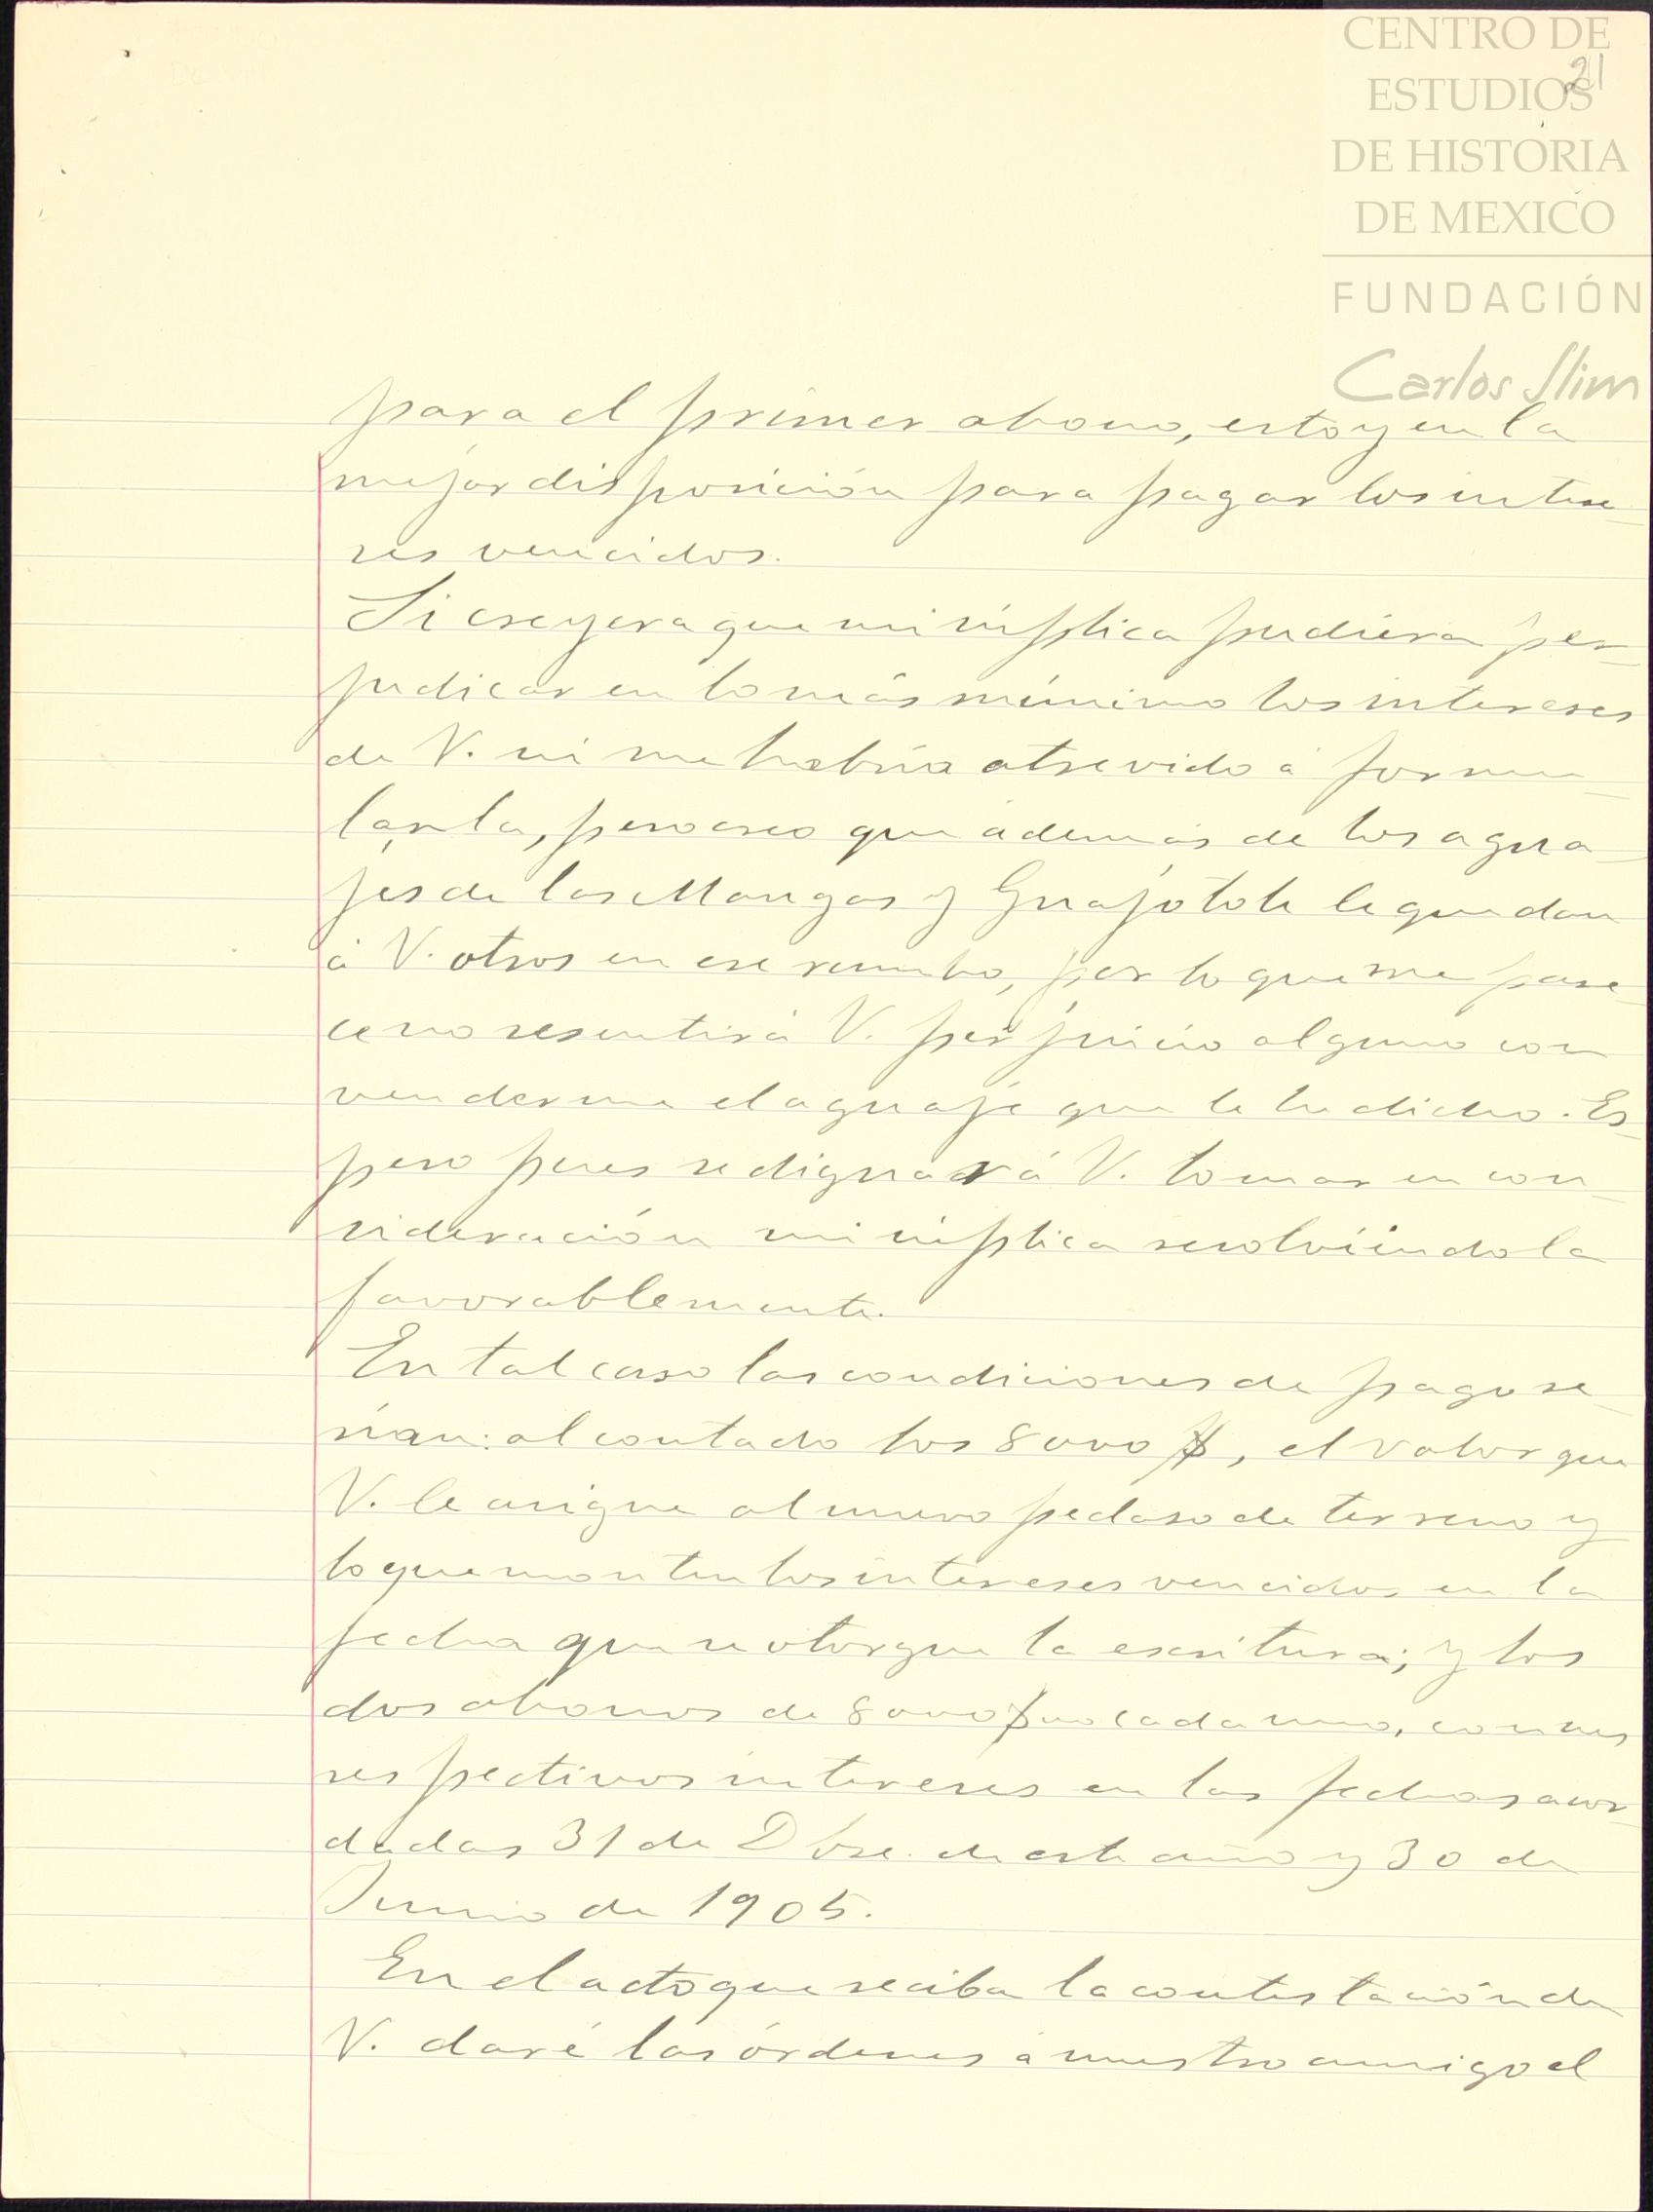 CENTRO DE
ESTUDIOS
DE HISTORIA
DE MEXICO
FUNDACIÓN
Carlos Slim
21
para el primer abono, estoy en la
mejor disposición para pagar los intere-
ses vencidos.
Si creyera que mi súplica pudiera per-
judicar en lo más mínimo los intereses
de V. ni me habría atrevido á formu-
larla, pero creo que además de los agua-
jes de las Mangas y Guajolote le quedan
á V. otros en ese rumbo, por lo que me pare-
ce no resentirá V. perjuicio alguno con
venderme el aguaje que le he dicho. Es-
pero pues se dignará V. tomar en con-
sideración mi súplica resolviéndola
favorablemente.
En tal caso las condiciones de pago se-
rían: al contado los 8000 $, el valor que
V. le asigne al nuevo pedaso de terreno y
lo que monten los intereses vencidos en la
fecha que se otorgue la escritura; y los
dos abonos de 8000 $ cada uno, con sus
respectivos intereses en las fechas acor-
dadas 31 de Dbre. de este año y 30 de
Junio de 1905.
En el acto que reciba la contestación de
V. daré las órdenes á nuestro amigo el